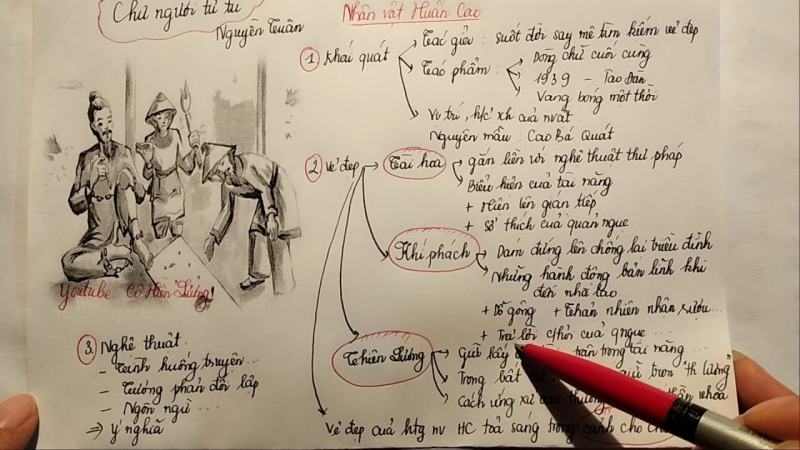 Chữ người tử tù
Nguyễn Tuân
Nhân vật Huấn Cao
1 Khái quát
Tác giả: suốt đời say mê tìm kiếm vẻ đẹp
Tác phẩm:
Dòng chữ cuối cùng
1939 - Tao Đàn
Vang bóng một thời
Vị trí, h/c xh của nvật
Nguyên mẫu: Cao Bá Quát
2 Vẻ đẹp
Tài hoa
gắn liền với nghệ thuật thư pháp
Biểu hiện của tài năng
+ Hiện lên gián tiếp
+ Sở thích của quản ngục
Khí phách
Dám đứng lên chống lại triều đình
Những hành động bản lĩnh khi
đến nhà lao
+ Dỗ gông + Thản nhiên nhận rượu...
+ Trả lời c/hỏi của qngục ...
Thiên lương
Giữ
trân trọng tài năng ...
Trong bất
giữ trọn "th lương"
Cách ứng xử cao thượng
Vẻ đẹp của htg nv HC toả sáng trong cảnh cho
Youtube Cô Hiên Lương
3. Nghệ thuật.
- Tình huống truyện...
- Tương phản đối lập
- Ngôn ngữ ...
⇒ Ý nghĩa